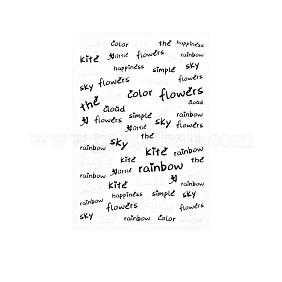 color the happiness
kite flowers rainbow
happiness simple sky
sky flowers
color flowers
the
cloud cloud
flowers simple flowers
sky
sky
rainbow kite rainbow
kite the
rainbow
kite rainbow
happiness simple sky
flowers flowers
sky rainbow color